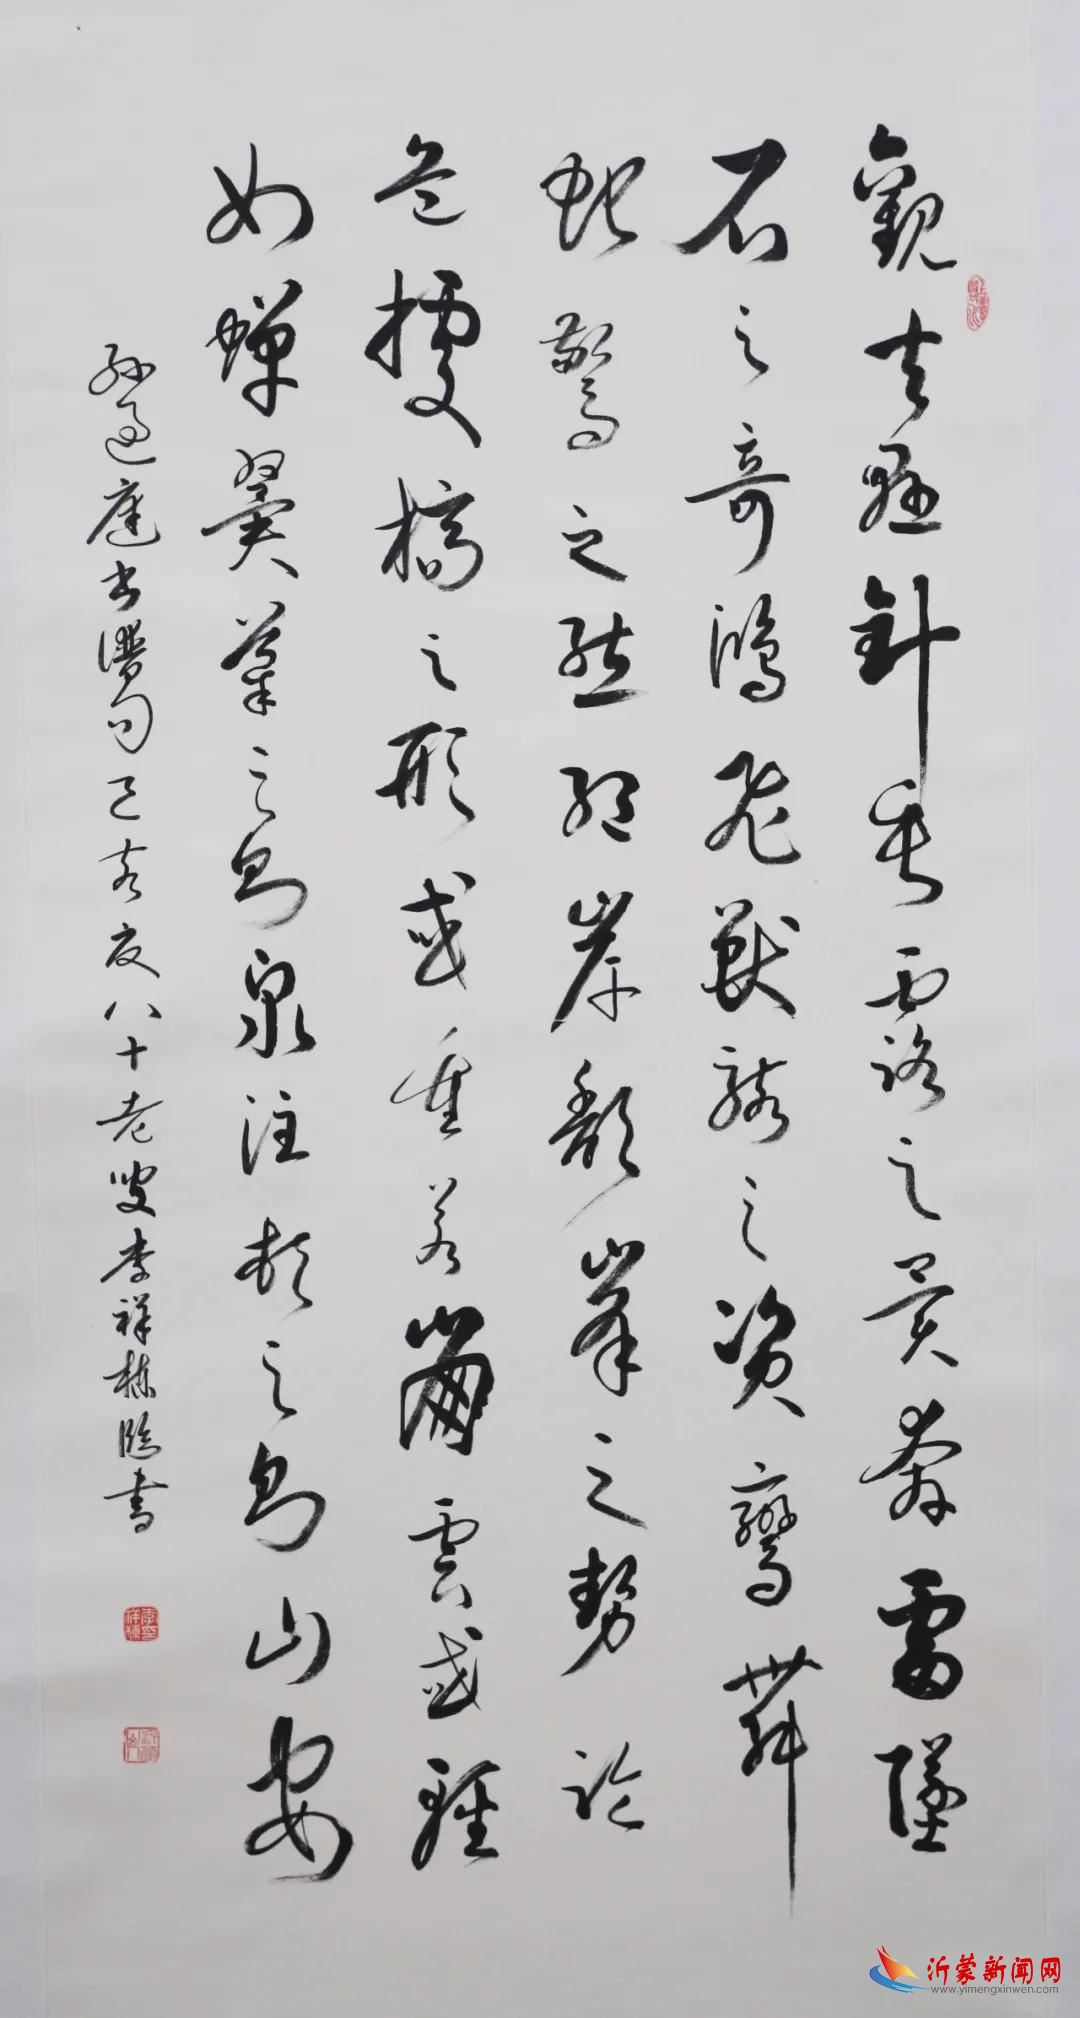 觀夫懸針垂露之異奔雷墜
石之奇鴻飛獸駭之資鸞舞
蛇驚之態絕岸頹峯之勢臨
危據槁之形或重若崩雲或輕
如蟬翼導之則泉注頓之則山安
孫過庭書譜句己亥夏八十老叟李祥栋臨書
沂蒙新闻网
www.yimengxinwen.com